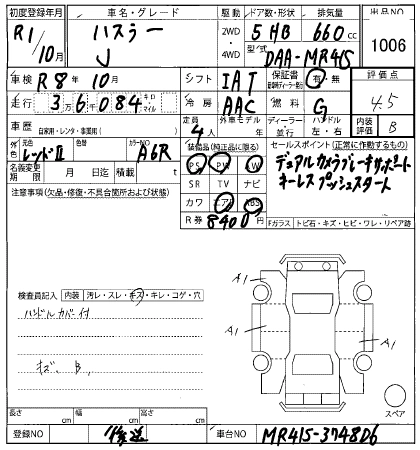 初度登録年月 車名・グレード 駆動 ドア数・形状 排気量 出品NO
R1/10月 ハスラー J 2WD・4WD 5 HB 660cc 1006
型式 DAA-MR41S
車検 R8年10月 シフト IAT 保証書 有・無 評価点
走行 36084 キロ マイル 冷房 AAC 燃料 G 4.5
車歴 自家用・レンタ・事業用( ) 定員 4人 外車モデル 年 ディーラー・並行 ハンドル 左・右 内装評価 B
外色 元色 レッドⅡ 色 カラーNO A6R 装備品(純正品に限る) セールスポイント(正常に作動するもの)
PS PW AW デュアルカメラブレーキサポート
名義変更期限 月 日迄 積載 t SR TV ナビ キーレス プッシュスタート
注意事項(欠品・修復・不具合箇所および状態) カワ エアB ABS
R券 8400円 Fガラス トビ石・キズ・ヒビ・ワレ・リペア跡
検査員記入 内装 汚レ・スレ・キズ・キレ・コゲ・穴
ハンドルカバー付
A1 A1
A1
キズ、B、
スペア
長さ cm 幅 cm 高さ cm
登録NO 車台NO MR41S-3748D6